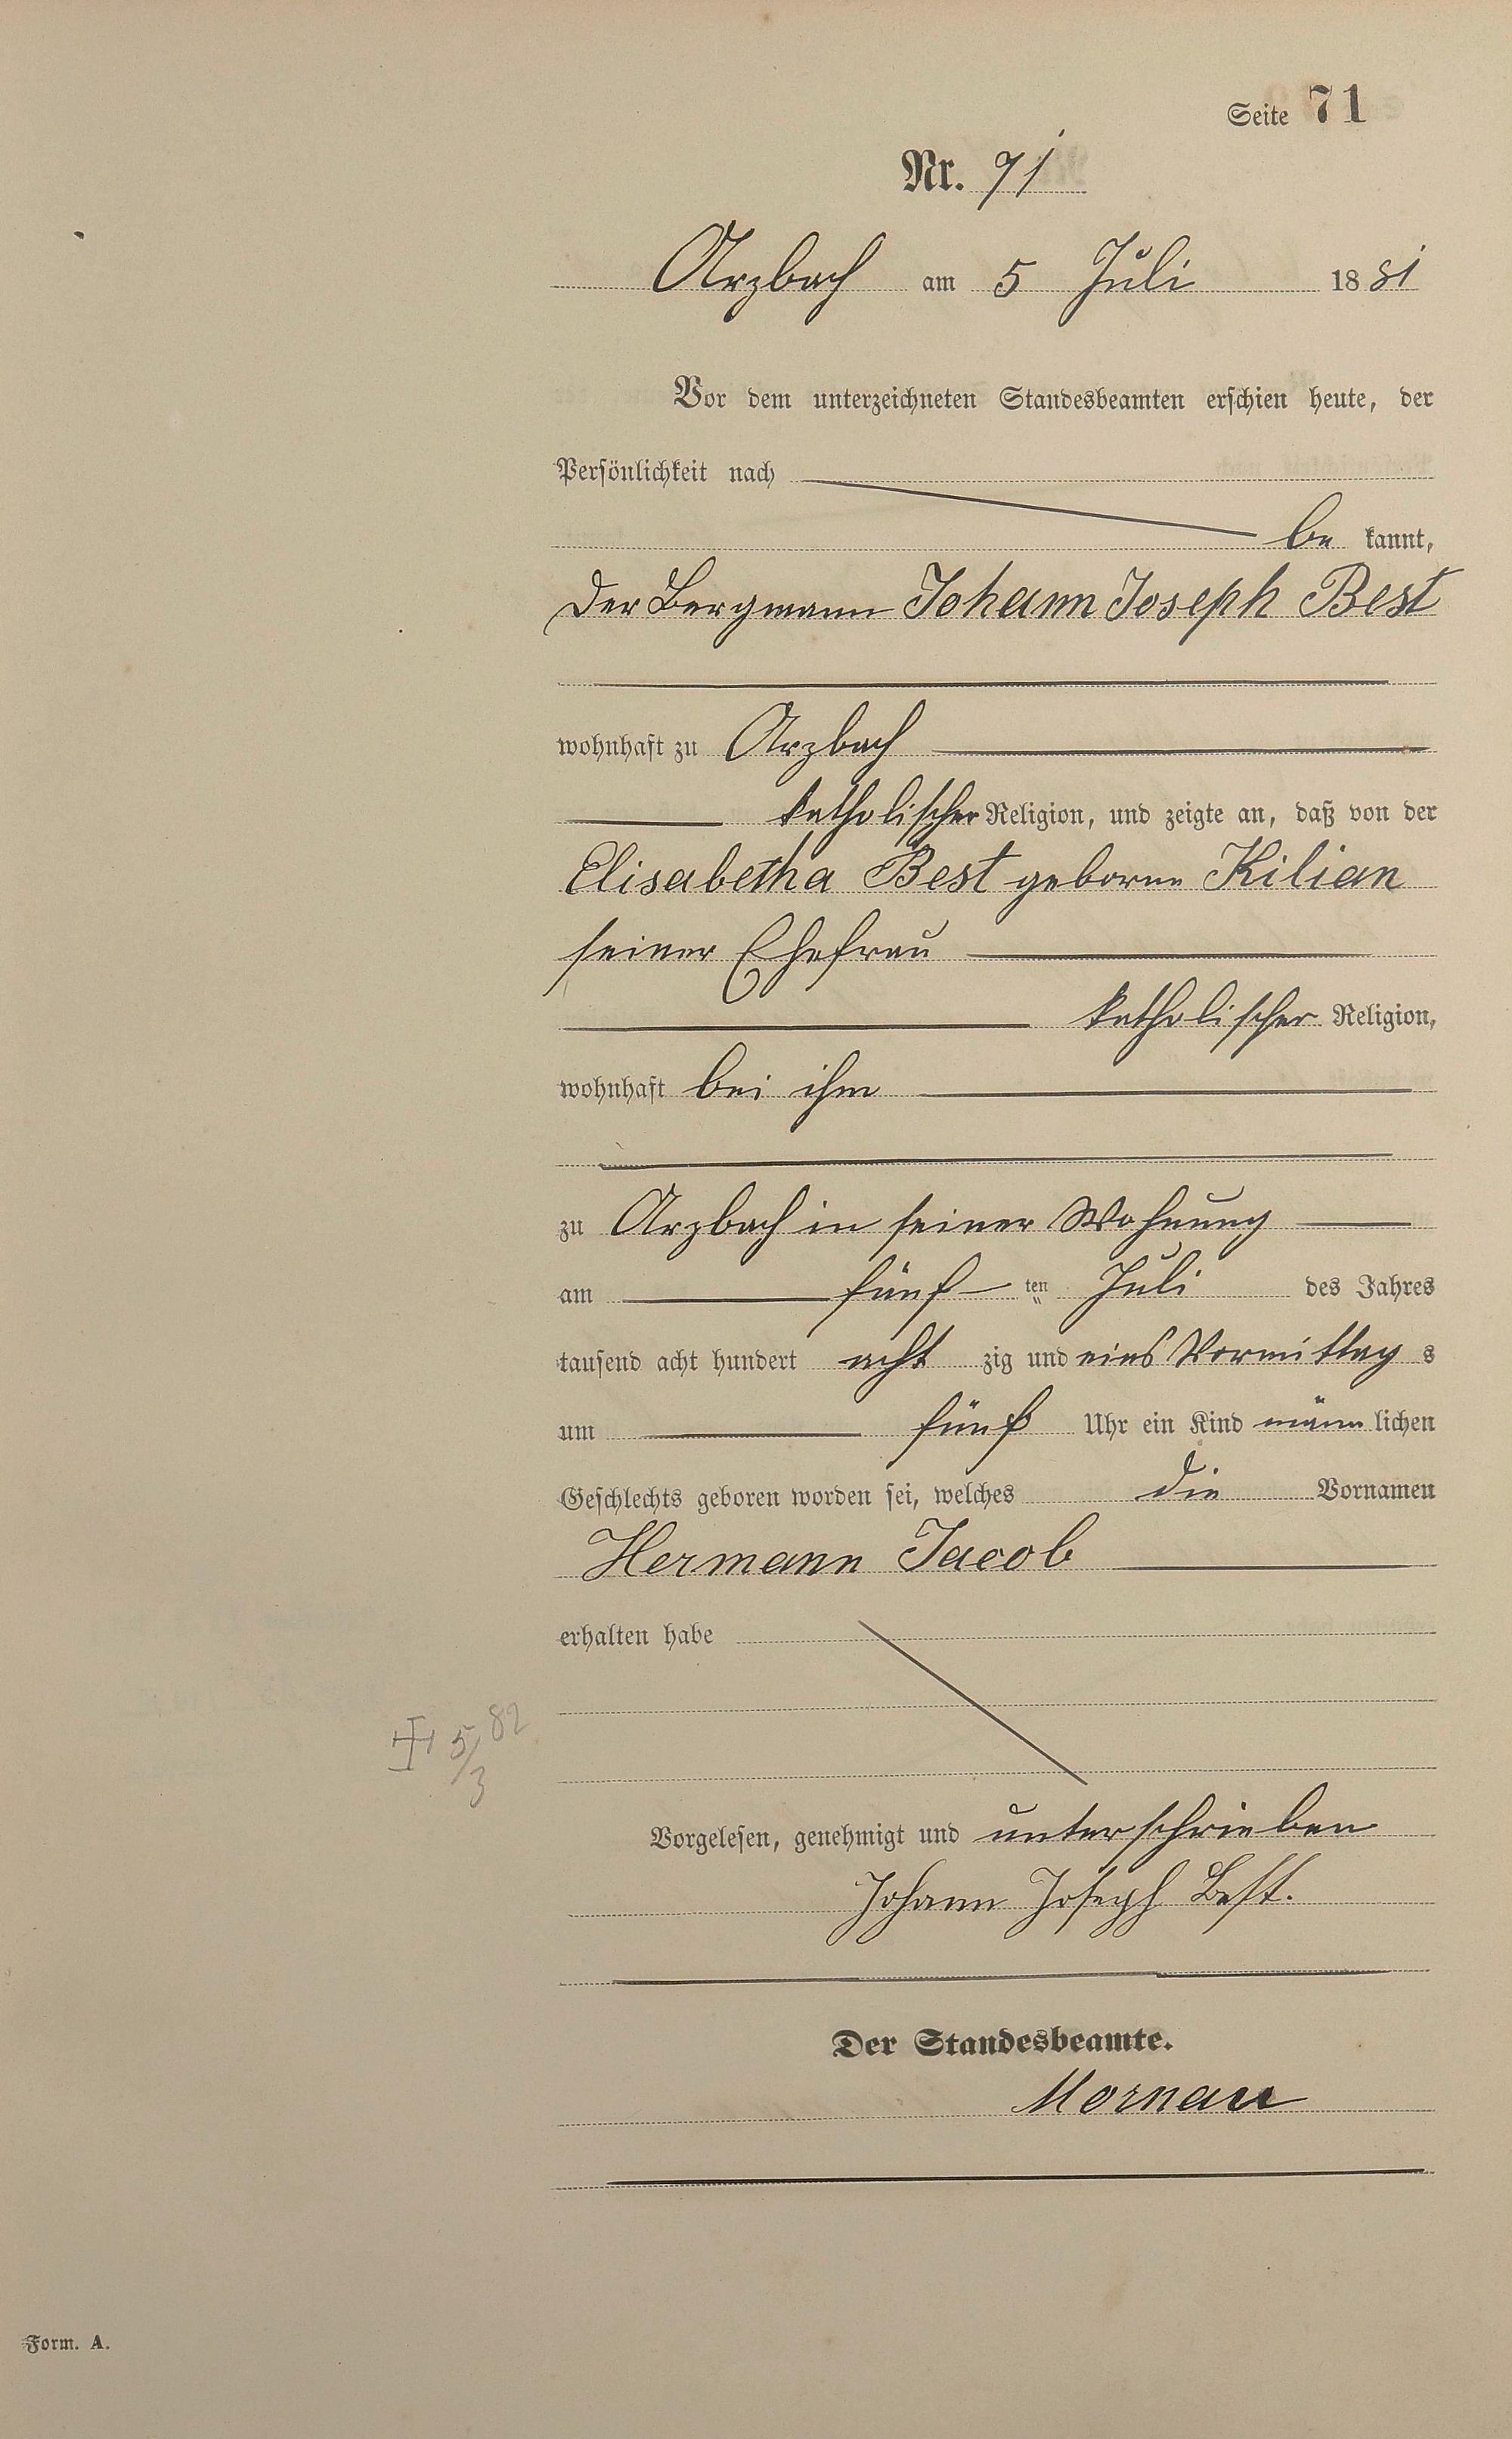 Seite 71
Nr. 71
Arzbach am 5 Juli 1881
Vor dem unterzeichneten Standesbeamten erschien heute, der
Persönlichkeit nach
be kannt,
der Bergmann Johann Joseph Best
wohnhaft zu Arzbach
katholischer Religion, und zeigte an, daß von der
Elisabetha Best geborne Kilian
seiner Ehefrau
katholischer Religion,
wohnhaft bei ihm
zu Arzbach in seiner Wohnung
am fünf ten Juli des Jahres
tausend acht hundert acht zig und eins Vormittag s
um fünf Uhr ein Kind männ lichen
Geschlechts geboren worden sei, welches die Vornamen
Hermann Jacob
erhalten habe
5/3 82
Vorgelesen, genehmigt und unterschrieben
Johann Joseph Best.
Der Standesbeamte.
Mornau
Form. A.